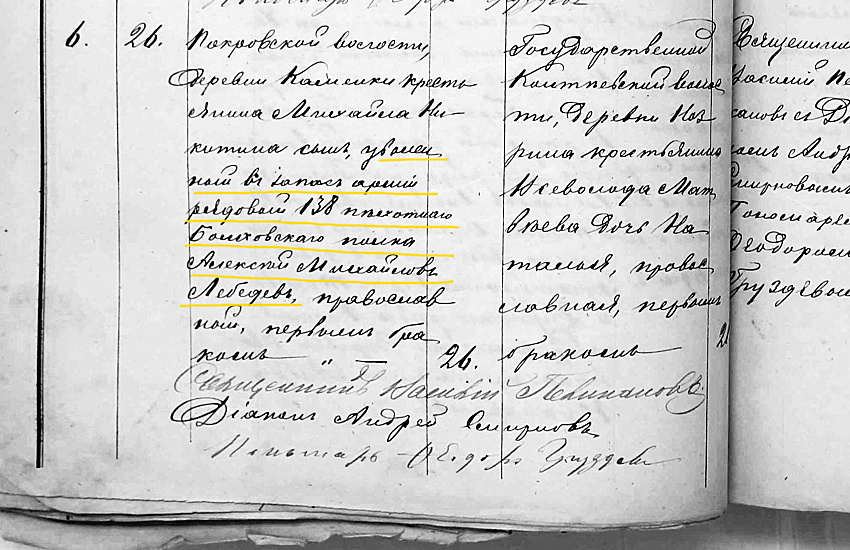 6. 26. Покровской волости,
деревни Каменки кресть
янина Михаила Ни
китина сынъ, уволен
ной въ запасъ армiи
рядовой 138 пѣхотнаго
Болховскаго полка
Алексѣй Михайловъ
Лебедевъ, православ
ной, первымъ бра
комъ " — 26.
Государственной
волос
ти, деревни
крестьянина
Всеволода Мат
вѣева дочь На
талья, правос
лавная, первымъ
бракомъ
Священникъ Василiй
Дiаконъ Андрей Смирновъ
Пономарь Ѳедоръ Груздевъ
Священник
Василiй Пе
Андр
Смирновымъ
Пономаре
Ѳеодоромъ
Груздевым